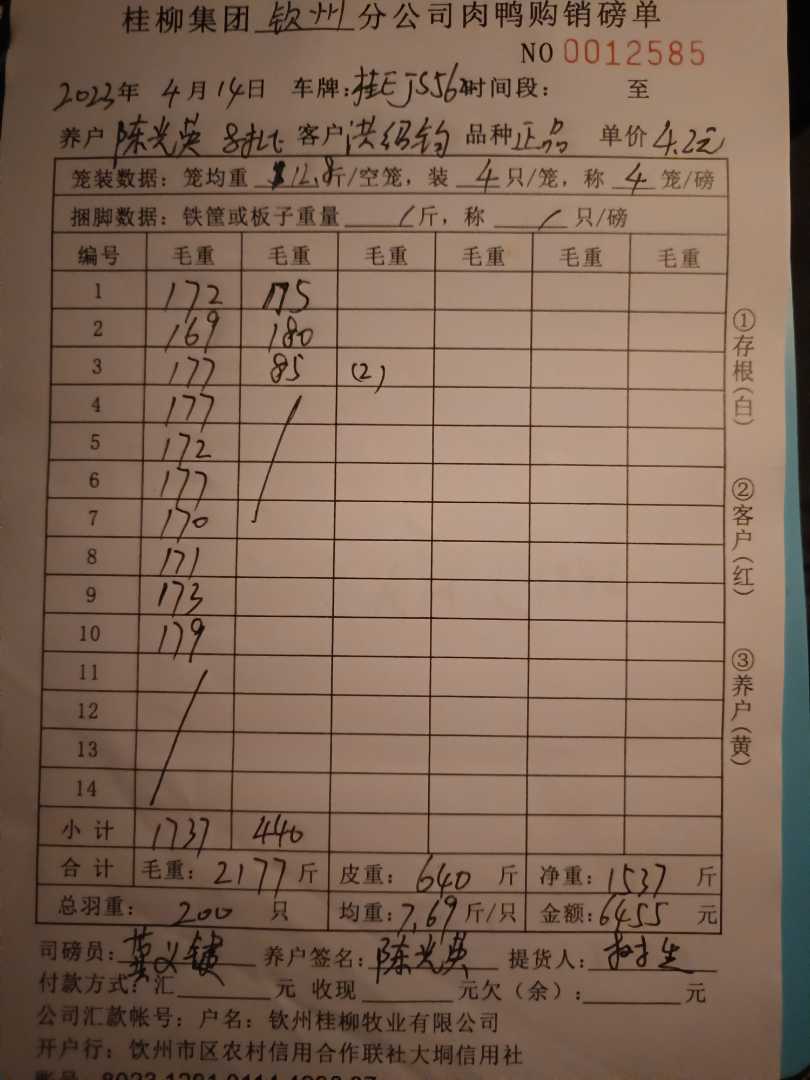 桂柳集团 钦州 分公司肉鸭购销磅单
NO 0012585
2023年 4月14日 车牌:桂EJS562 时间段: 至
养户 陈光英 客户 洪绍钧 品种 正品 单价 4.2元
笼装数据:笼均重 12.8斤/空笼,装 4 只/笼,称 4 笼/磅
捆脚数据:铁筐或板子重量 / 斤,称 / 只/磅
编号 毛重 毛重 毛重 毛重 毛重 毛重
1 172 175
2 169 180
3 177 85 (2)
4 177
5 172
6 177
7 170
8 171
9 173
10 179
11
12
13
14
小计 1737 440
合计 毛重:2177斤 皮重:640斤 净重:1537斤
总羽重:200只 均重:7.69斤/只 金额:6455元
司磅员: 养户签名:陈光英 提货人:
付款方式:汇 元 收现 元欠(余): 元
公司汇款帐号:户名:钦州桂柳牧业有限公司
开户行:钦州市区农村信用合作联社大垌信用社
①存根(白)
②客户(红)
③养户(黄)